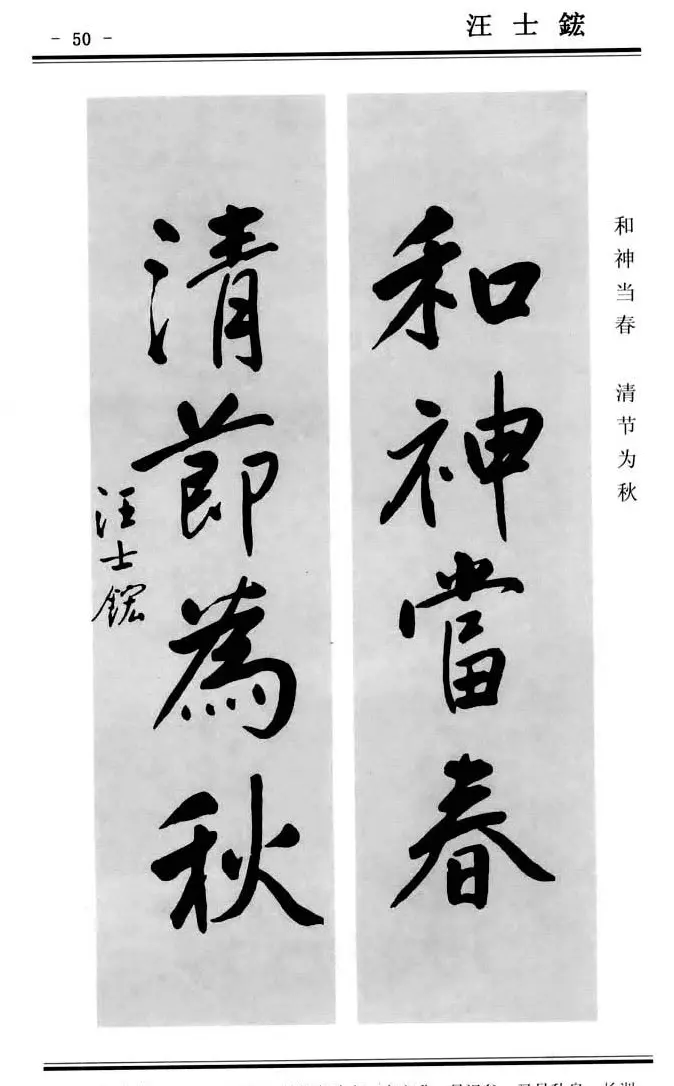 - 50 -
汪士鋐
和神当春 清节为秋
和神當春
清節為秋
汪士鋐